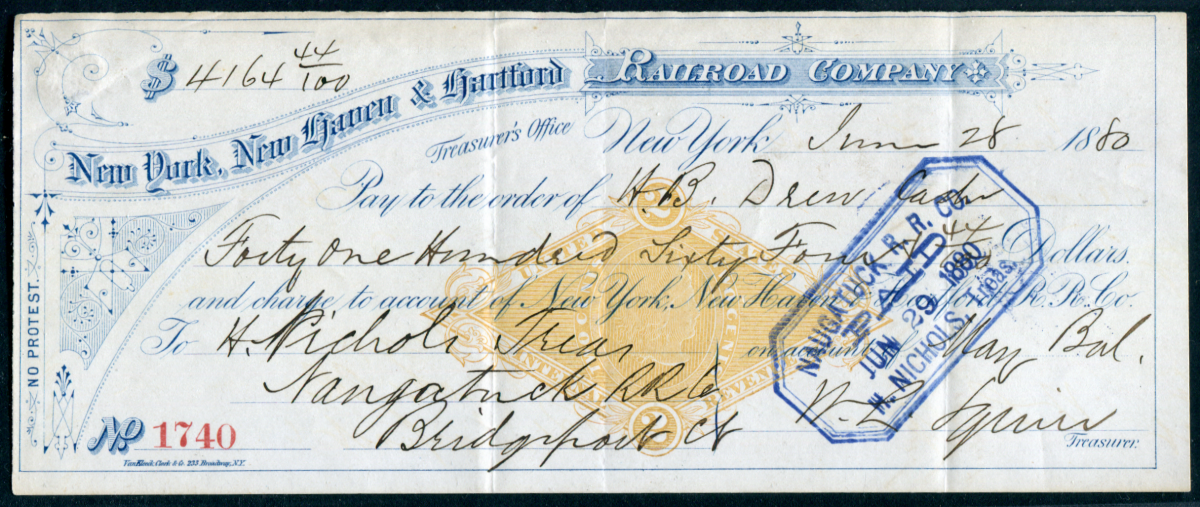 $ 4164 44/100
New York, New Haven & Hartford RAILROAD COMPANY
Treasurer's Office New York June 28 1880
Pay to the order of H. B. Drew Cashr
Forty One Hundred Sixty Four & 44/100 Dollars.
and charge to account of New York, New Haven & Hartford R. R. Co.
To H. Nichols Treas on account May Bal.
Naugatuck RR Co
Bridgeport Ct
W. L. Squire
Treasurer.
NO PROTEST.
No 1740
Van Kleeck, Clark & Co. 233 Broadway, N.Y.
2
UNITED STATES
INTERNAL REVENUE
2
NAUGATUCK R. R. CO.
PAID
JUN 29 1880
H. NICHOLS, Treas.